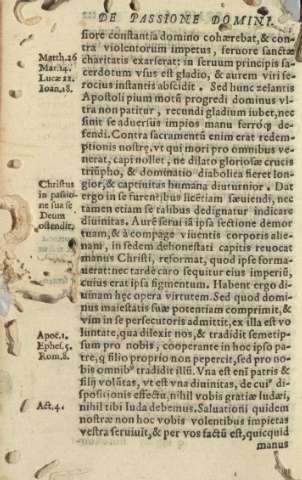 DE PASSIONE DOMINI.
siore constantia domino cohærebat, & con
tra violentorum impetus, feruore sanctæ
Matth.26 charitatis exarserat: in seruum principis sa-
Mar.14. cerdotum vsus est gladio, & aurem viri fe-
Lucæ 22. rocius instantis abscidit. Sed hunc zelantis
Ioan.18. Apostoli pium motū progredi dominus vl
tra non patitur, recundi gladium iubet, nec
sinit se aduersus impios manu ferroq; de-
fendi. Contra sacramentū enim erat redemp
tionis nostrę, vt qui mori pro omnibus ve-
nerat, capi nollet, ne dilato gloriosæ crucis
triūpho, & dominatio diabolica fieret lon-
Christus gior, & captiuitas humana diuturnior. Dat
in passio- ergo in se furentibus licētiam sæuiendi, nec
ne sua se tamen etiam se talibus dedignatur indicare
Deum diuinitas. Aurē serui iā ipsa sectione demor
ostendit. tuam, & à compage viuentis corporis alie-
nam, in sedem dehonestati capitis reuocat
manus Christi, reformat, quod ipse forma-
uerat: nec tardè caro sequitur eius imperiū,
cuius erat ipsa figmentum. Habent ergo di-
uinam hęc opera virtutem. Sed quod domi-
nus maiestatis suæ potentiam comprimit, &
vim in se persecutoris admittit, ex illa est vo
Apoc.1. luntate, qua dilexit nos, & tradidit semetip-
Ephes.5. sum pro nobis, cooperante in hoc ipso pa-
Rom.8. tre, q filio proprio non pepercit, sed pro no-
bis omnibꝰ tradidit illū. Vna est eni patris &
filij volūtas, vt est vna diuinitas, de cuiꝰ di-
spositionis effectu, nihil vobis gratiæ Iudæi,
Act.4. nihil tibi Iuda debemus. Saluationi quidem
nostræ non hoc vobis volentibus impietas
vestra seruiuit, & per vos factū est, quicquid
manus